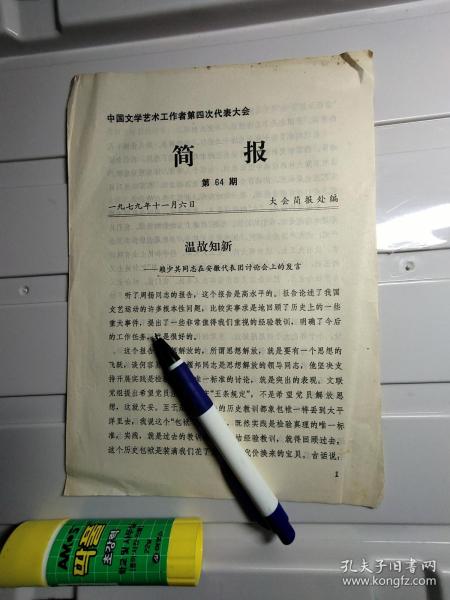 中国文学艺术工作者第四次代表大会
简 报
第 64 期
一九七九年十一月六日 大会简报处编
温故知新
——赖少其同志在安徽代表团讨论会上的发言
听了周扬同志的报告，这个报告是高水平的。报告论述了我国
文艺运动的许多根本性问题，比较实事求是地回顾了历史上的一些
重大事件，提出了一些非常值得我们重视的经验教训，明确了今后
的工作任务，是很好的。
这个报告 想解放的，所谓思想解放，就是要有一个思想的
飞跃，谈何容 邦同志是思想解放的领导同志，他坚决支
持开展实践是检 一标准的讨论，就是突出的表现。文联
党组提出希望党员 “五条规定”，不是希望党员解放思
想，这就欠妥。王 的历史教训都象包袱一样丢到太平
洋里去，我说这个“包袱 ，既然实践是检验真理的唯一标
准，实践，就是过去的教训 结经验教训，就得回顾过去，
这个历史包袱是装满我们花了 代价换来的宝贝。古话说：
1
AMOS
딱풀
초강력
孔夫子旧书网
www.kongfz.com